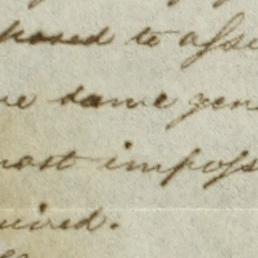 posed to asse
me same gen
most imposs
uired.